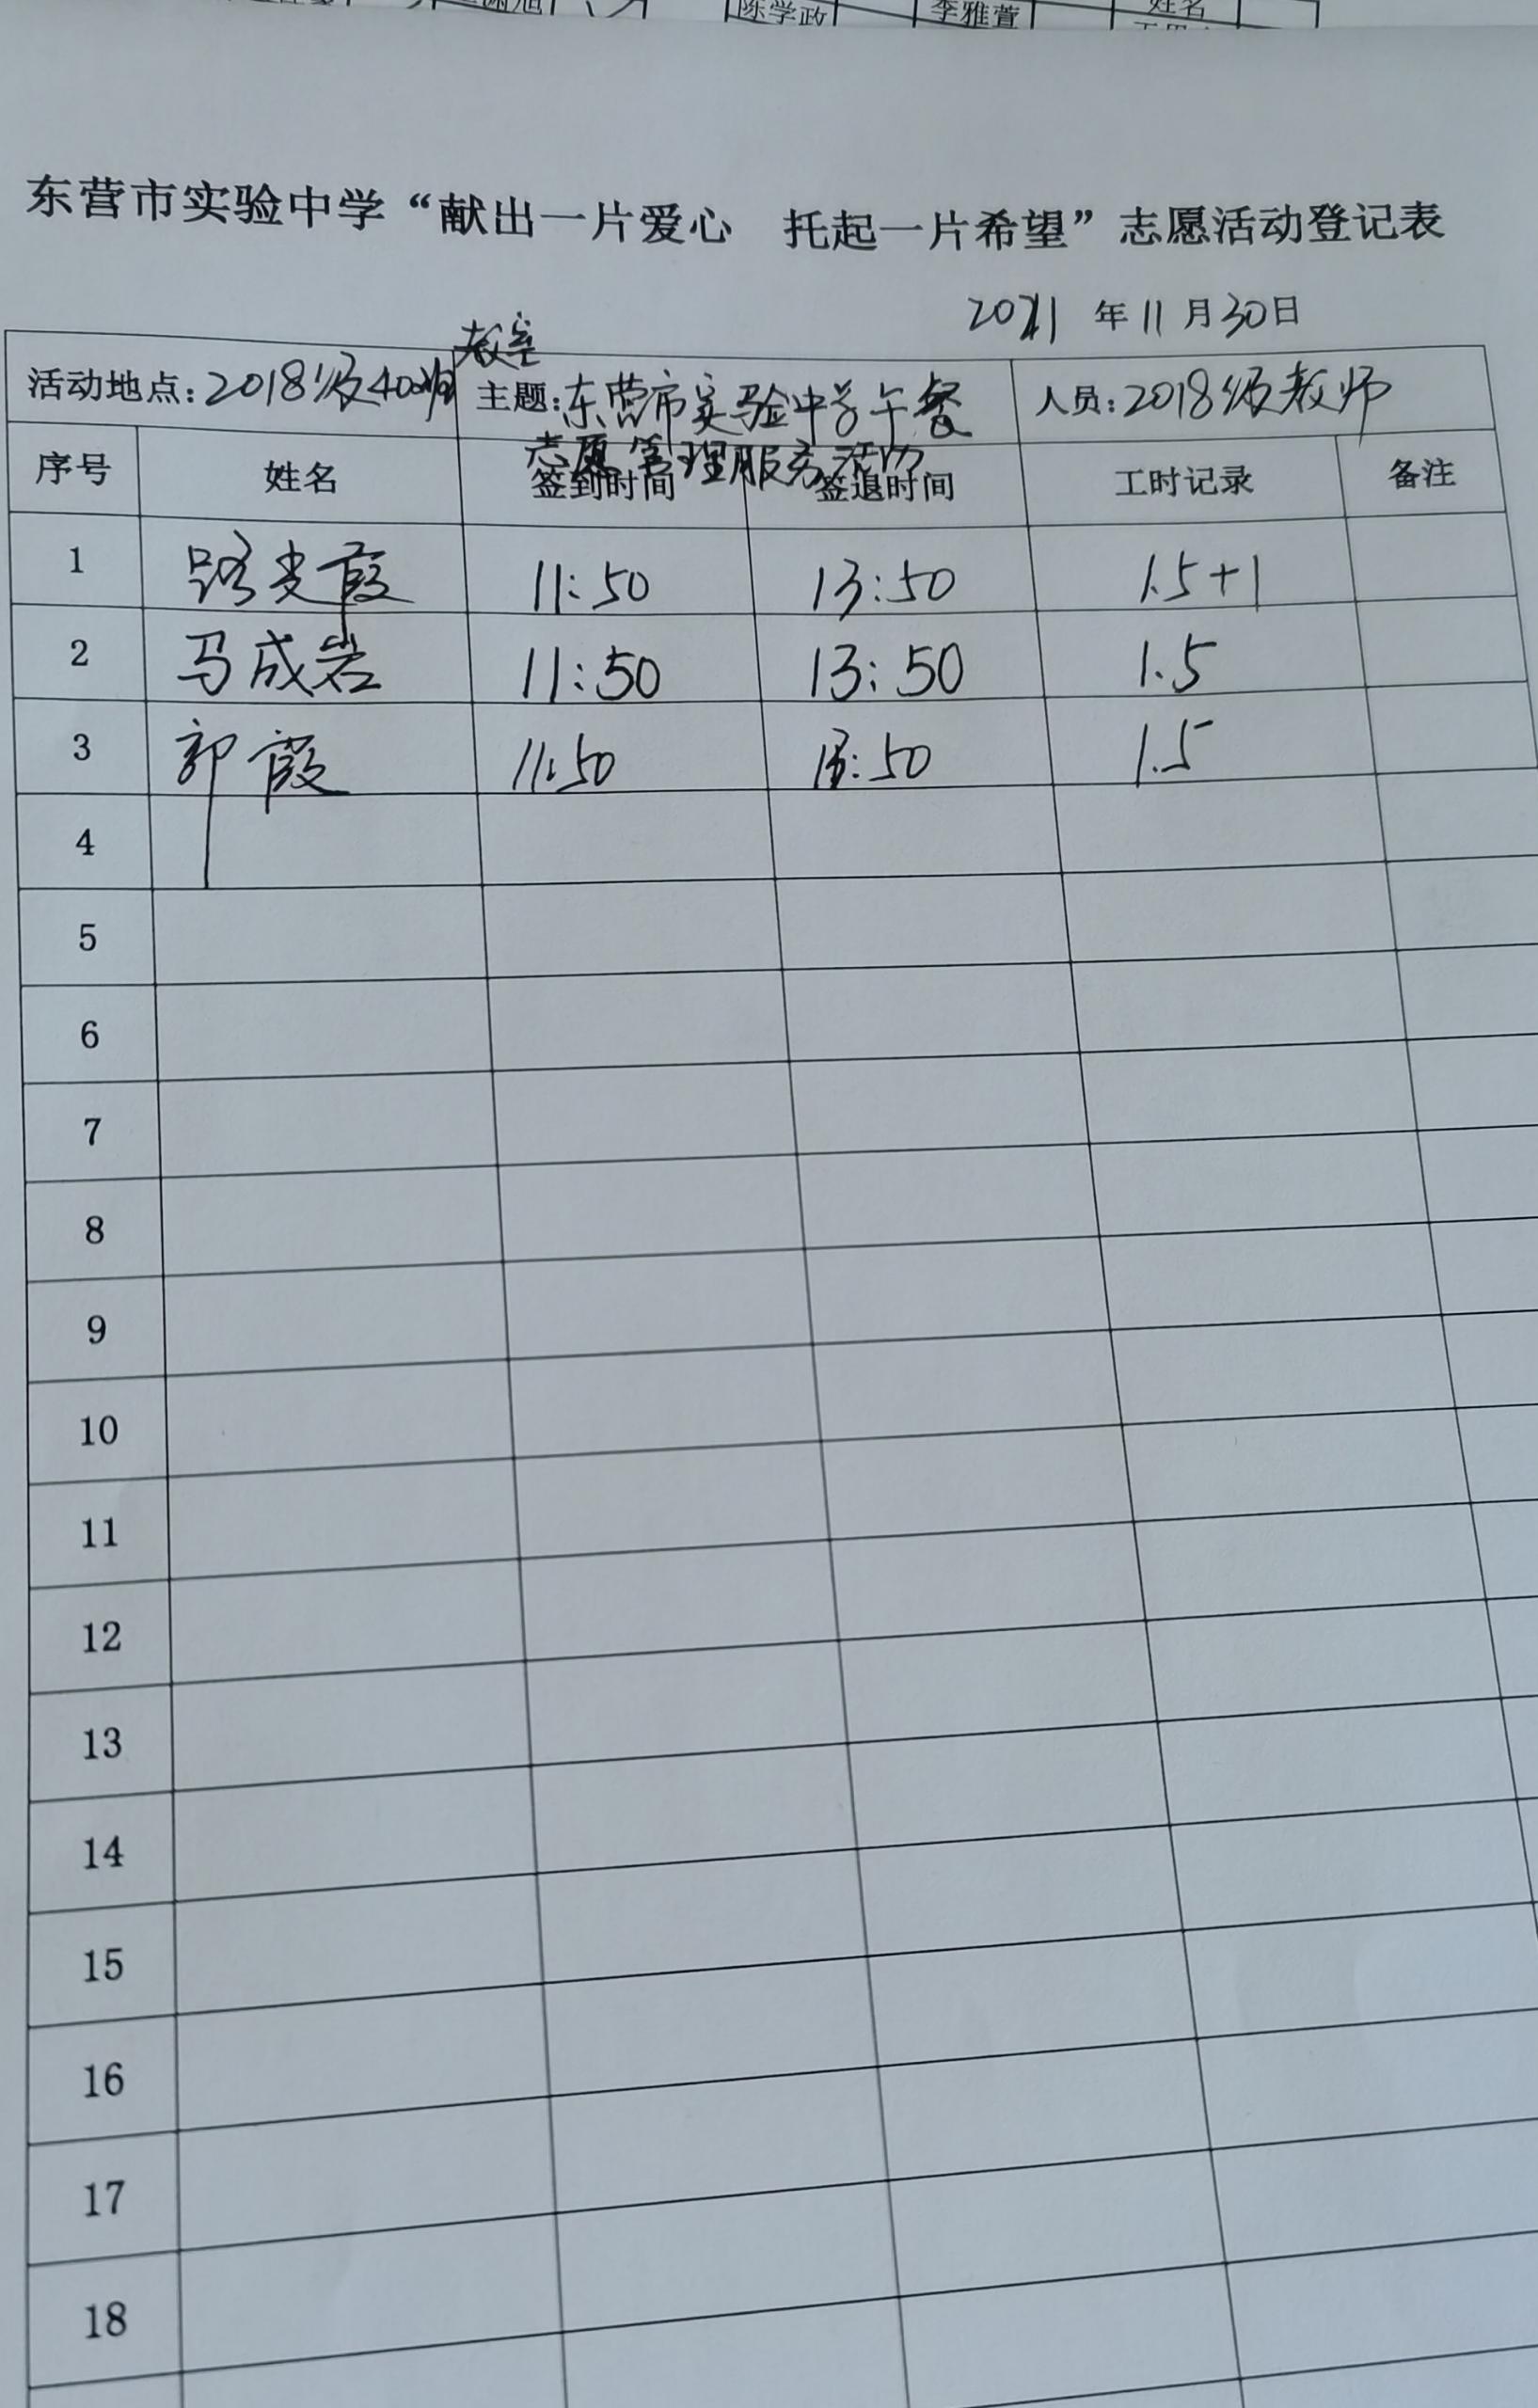 陈学政 李雅萱 姓名
东营市实验中学“献出一片爱心 托起一片希望”志愿活动登记表
2021 年 11 月 30 日
教室
活动地点：2018级400班 主题：东营市实验中学午餐 人员：2018级教师
志愿管理服务活动
序号 姓名 签到时间 签退时间 工时记录 备注
1 路光霞 11:50 13:50 1.5+1
2 马成岩 11:50 13:50 1.5
3 郭霞 11:50 13:50 1.5
4
5
6
7
8
9
10
11
12
13
14
15
16
17
18